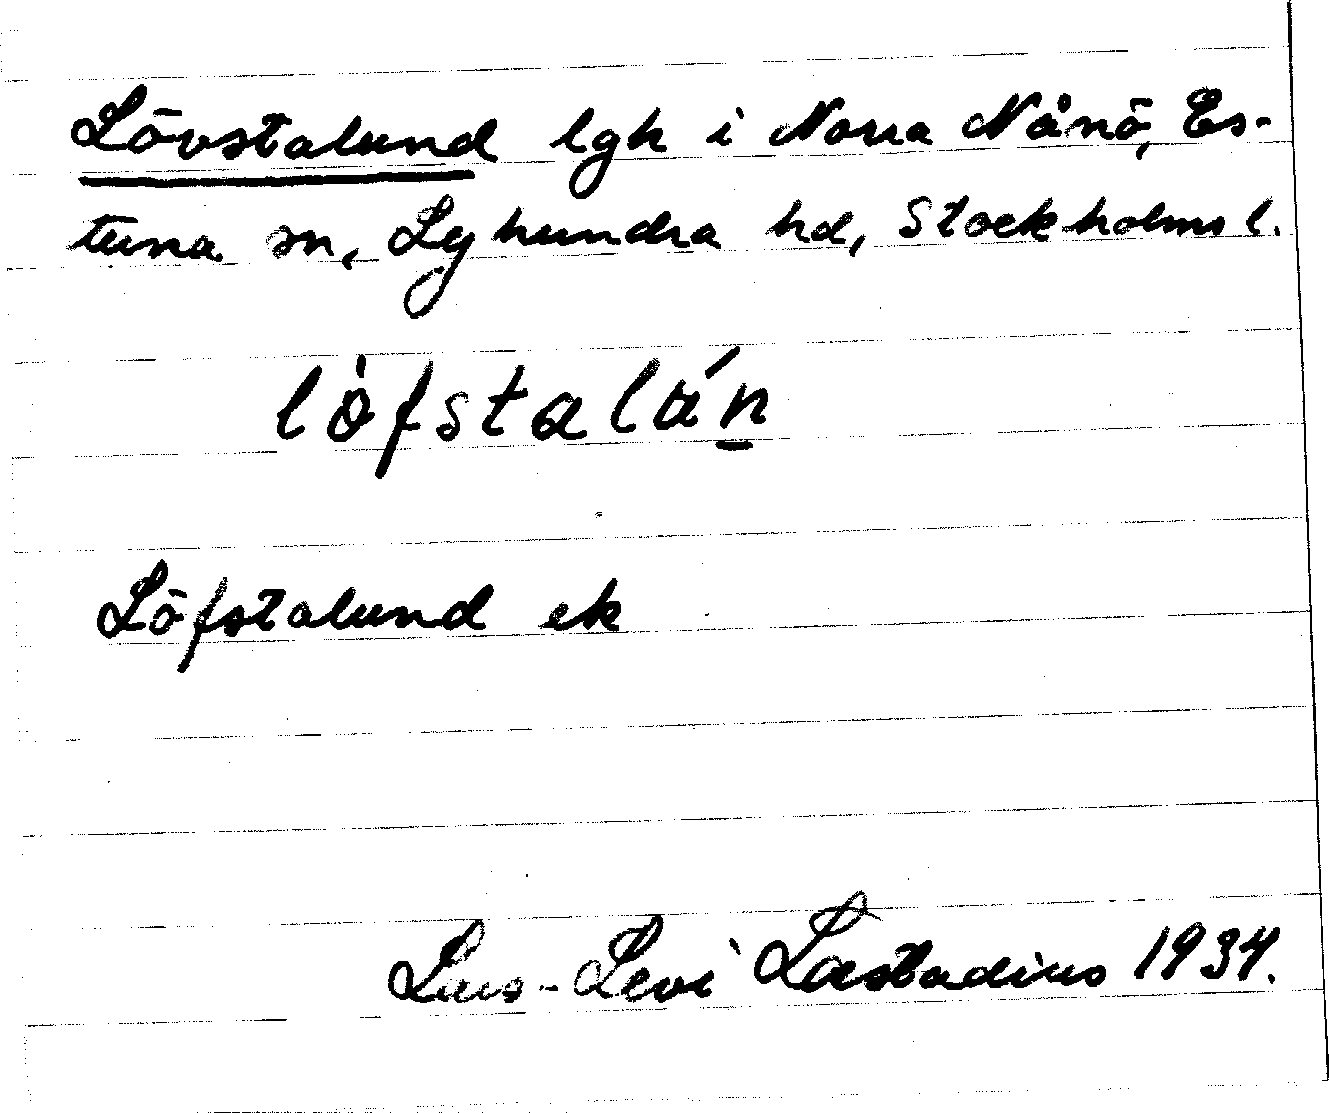 Lövstalund lgh i Norra Nånö, Es-
tuna sn, Lyhundra hd, Stockholms l.
lò̀fstalún̲
Löfstalund ek
Lars-Levi Læstadius 1934.